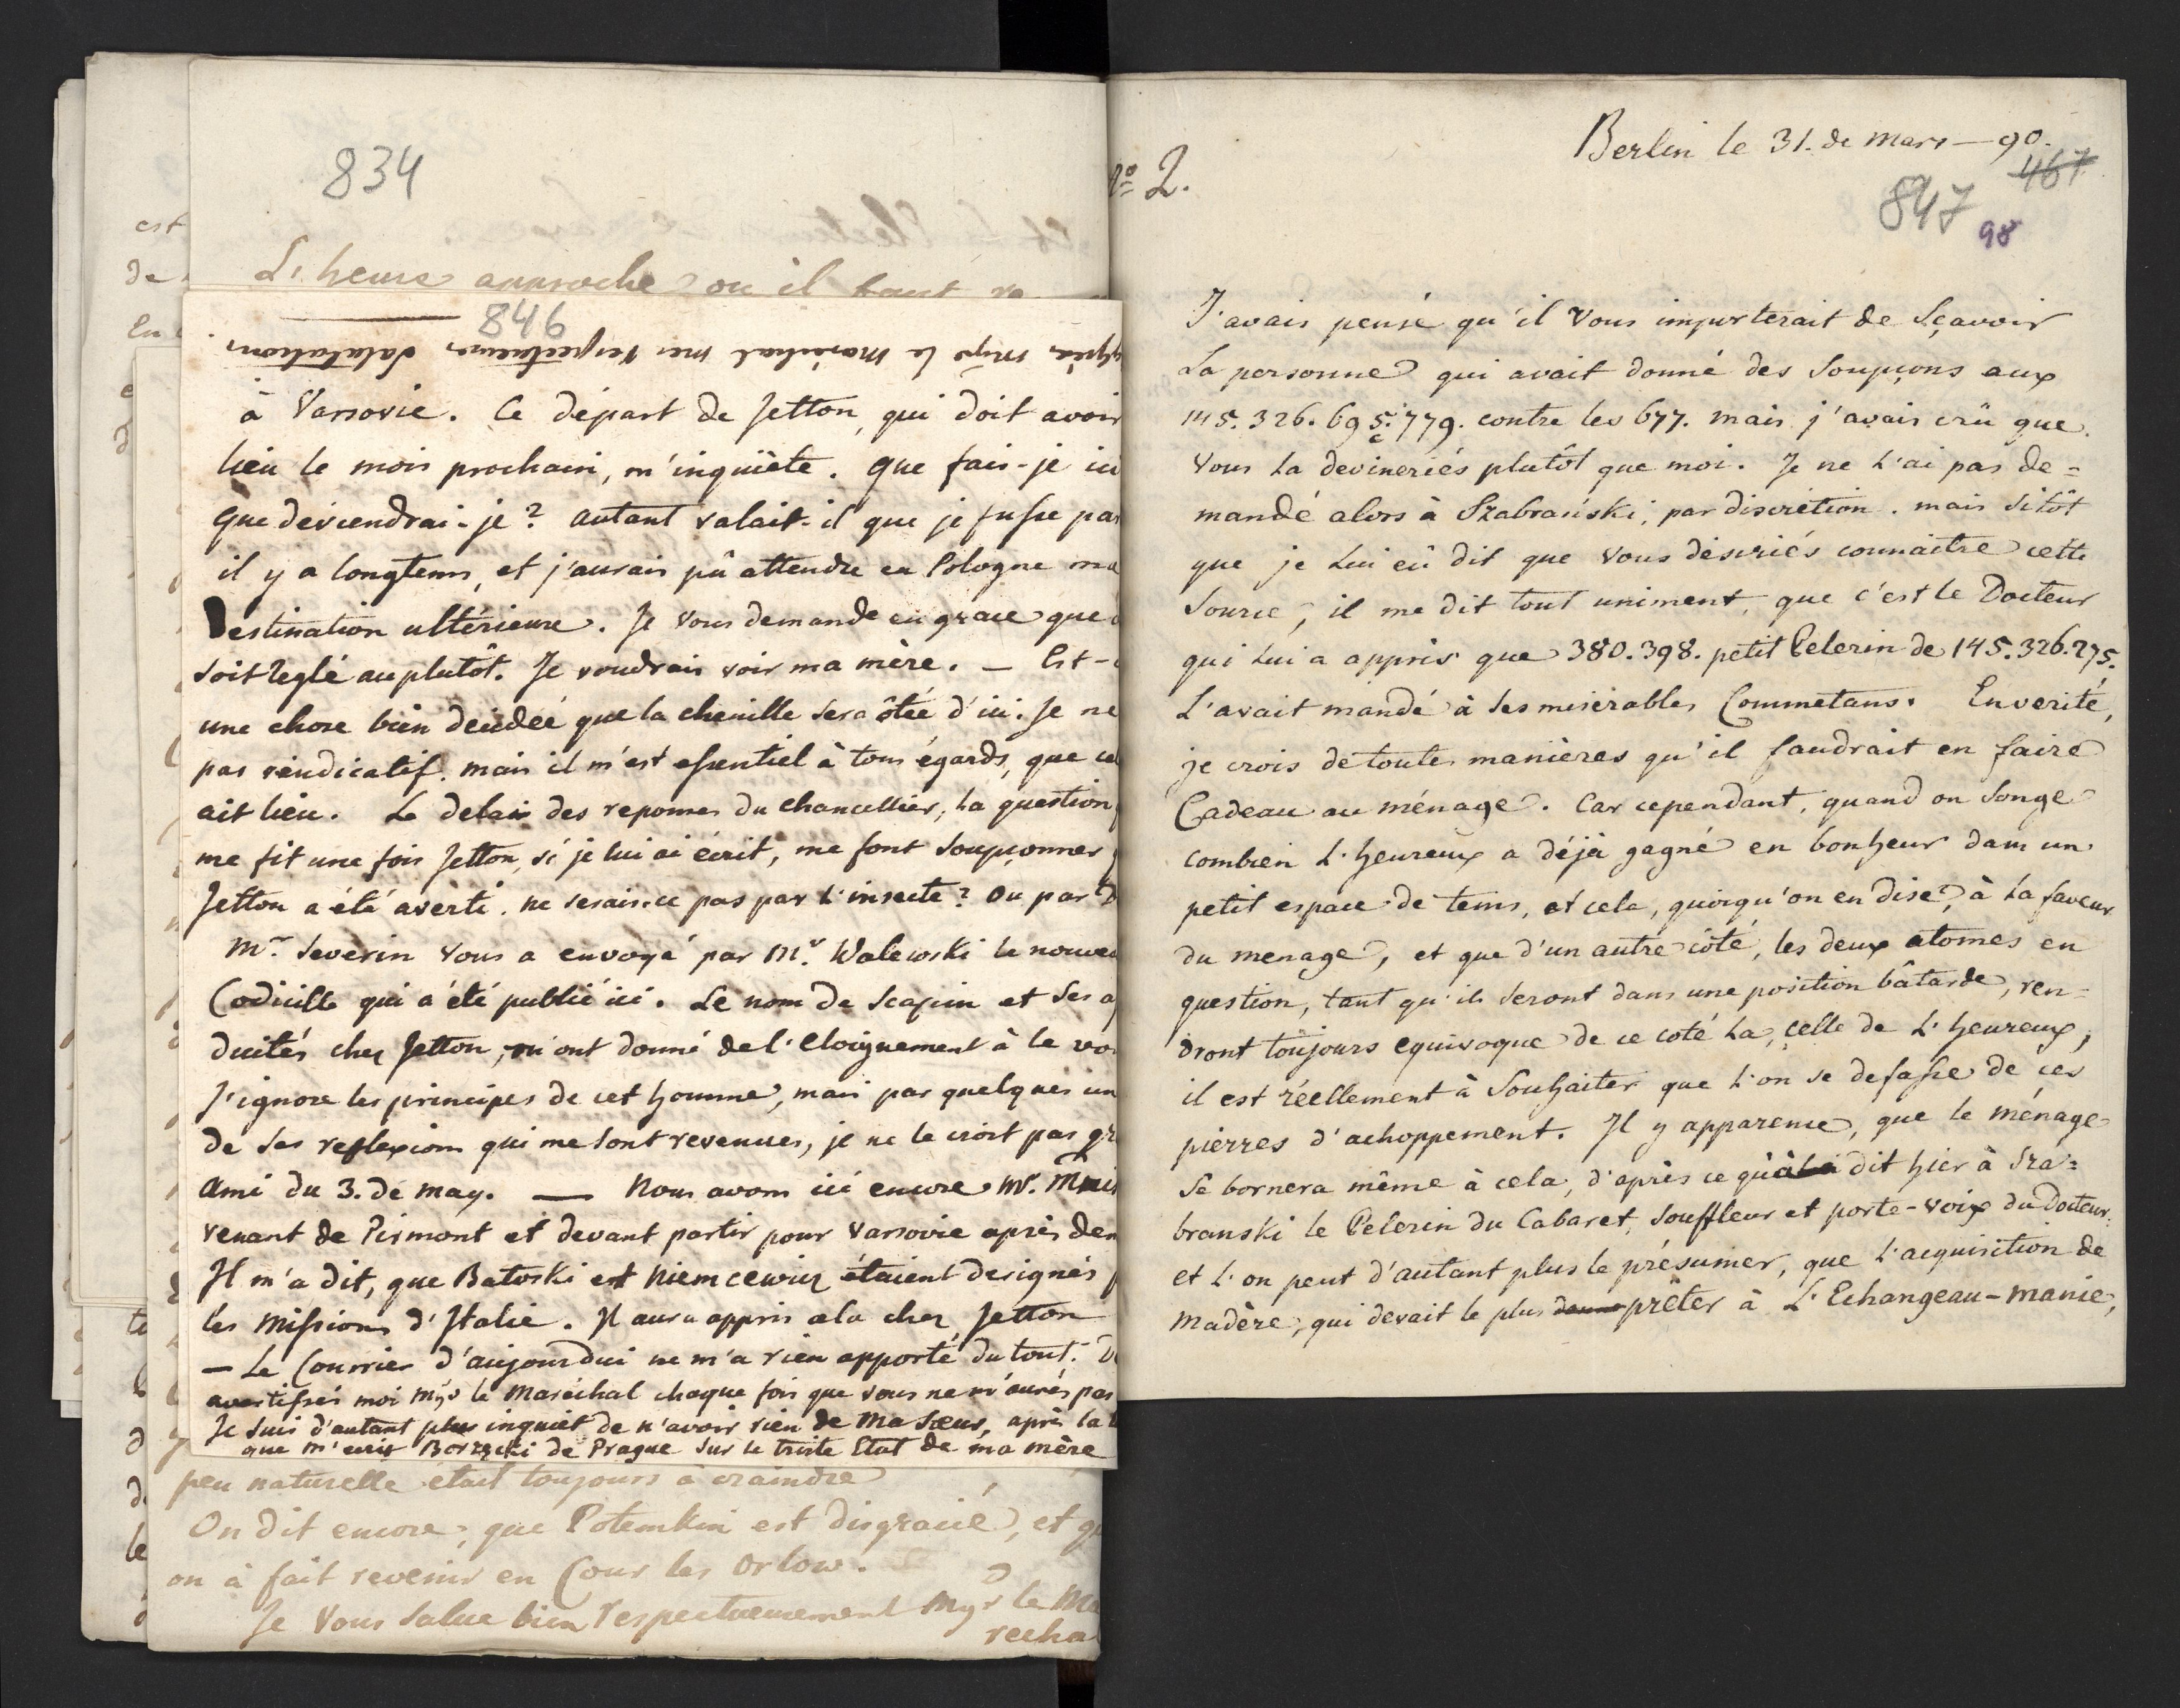 834
L'heure approche où il faut
846
agréés mgr le Maréchal mes respectueuses salutations
à Varsovie. Ce départ de Jetton, qui doit avoir
lieu le mois prochain, m'inquiète. Que fais-je ici
que deviendrai-je? autant valait-il que je fusse par
il y a longtems, et j'aurais pû attendre en Pologne ma
Destination ultérieure. Je vous demande en grace que
soit reglé au plutôt. Je voudrais voir ma mère. — Est-
une chose bien decideé que la chenille sera ôtée d'ici. Je ne
pas vindicatif. mais il m'est essentiel à tous égards, que ce
ait lieu. Le delais des reponses du chancellier, la question
me fit une fois Jetton, si je lui ai écrit, me font soupçonner
Jetton a été averti. ne serais-ce pas par l'insecte? ou par
Mr. Severin vous a envoyé par Mr. Walewski le nouvea
Codicille qui a été publié ici. Le nom de Scapin et ses a
duités chez Jetton, m'ont donné de l'eloignement à le vo
J'ignore les principes de cet homme, mais par quelques un
de ses reflexions qui me sont revenues, je ne le crois pas gr
Ami du 3. de may. — Nous avons ici encore Mr.
venant de Pirmont et devant partir pour Varsovie après dem
Il m'a dit, que Batoski et Niemcewicz étaient designés p
les missions d'Italie. Il aura appris cela chez Jetton
— Le Courrier d'aujourdui ne m'a rien apporté du tout. D
avertissés moi mgr le Maréchal chaque fois que vous ne m'aurés pas
Je suis d'autant plus inquiet de n'avoir rien de ma Sœur, après la
que m'écrit Borzęcki de Prague sur le triste Etat de ma mère
peu naturelle était toujours à craindre
On dit encore, que Potemkin est disgracié, et qu
on à fait revenir en Cour les Orlow.
Je vous salue bien respectueusement Mgr le Ma
recha
No 2.
Berlin le 31. de Mars — 90.
467
847
98
J'avais pensé qu'il vous importerait de sçavoir
la personne qui avait donné des soupçons aux
145. 326. 695. 779. contre les 677. mais j'avais crû que
vous la devineriés plutôt que moi. Je ne l'ai pas de=
mandé alors à Szabrański, par discrétion. mais sitôt
que je lui eû dit que vous désiriés connaitre cette
source, il me dit tout uniment, que c'est le Docteur
qui lui a appris que 380. 398. petit Pelerin de 145. 326. 275.
l'avait mandé à ses misérables Commetans. En verité,
je crois de toutes manières qu'il faudrait en faire
Cadeau au ménage. Car cependant, quand on songe
combien l'heureux a déjà gagné en bonheur dans un
petit espace de tems, et cela, quoiqu'on en dise, à la faveur
du menage, et que d'un autre coté, les deux atomes en
question, tant qu'ils seront dans une position bâtarde, ren=
dront toujours equivoque de ce coté la, celle de l'heureux,
il est réellement à Souhaiter que l'on se defasse de ces
pierres d'achoppement. Il y apparence, que le ménage
se bornera même à cela, d'après ce qu'a dit hier à Sza=
branski le Pélerin du Cabaret, souffleur et porte-voix du Docteur.
et l'on peut d'autant plus le présumer, que l'acquisition de
Madère, qui devait le plus prêter à l'Echangeau-manie,